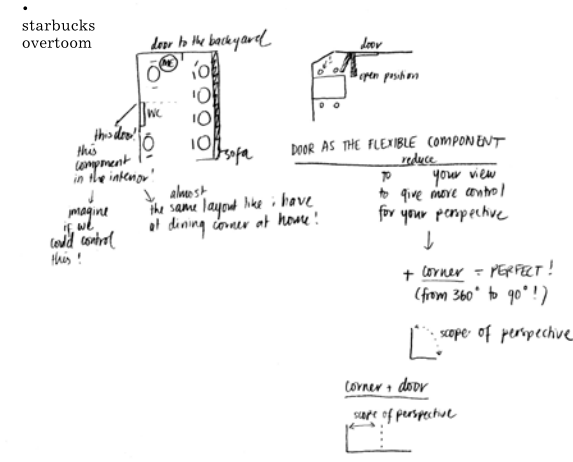 starbucks
overtoom
door to the backyard
ME
WC
this door!
this
component
in the interior!
sofa
imagine
if we
could control
this!
almost
the same layout like i have
at dining corner at house!
door
open position
DOOR AS THE FLEXIBLE COMPONENT
reduce
to your view
to give more control
for your perspective
+ corner = PERFECT!
(from 360° to 90°!)
scope of perspective
corner + door
scope of perspective